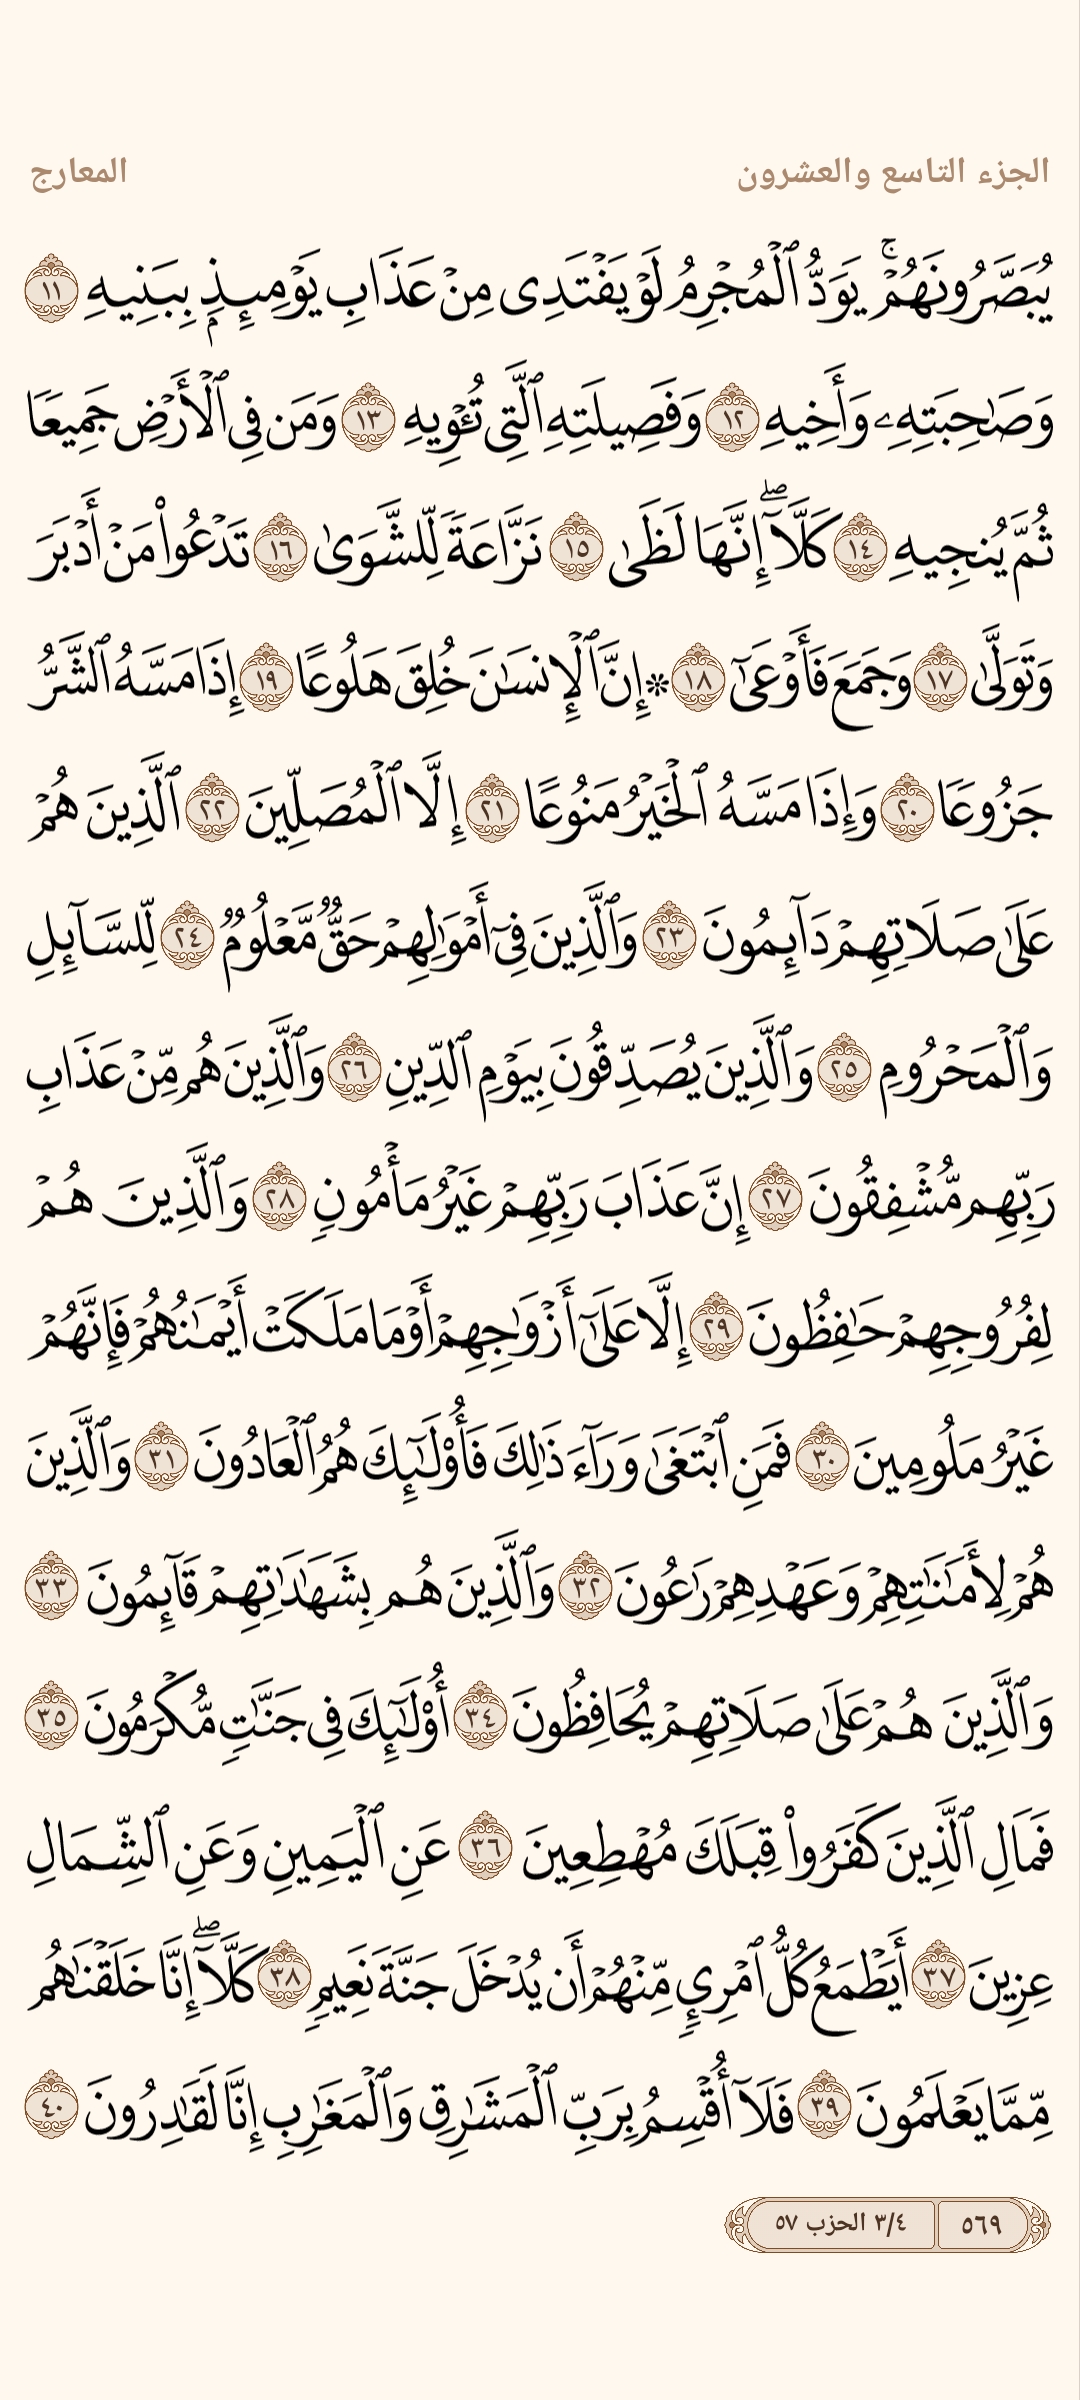 الجزء التاسع والعشرون
المعارج
يُبَصَّرُونَهُمۡۚ يَوَدُّ ٱلۡمُجۡرِمُ لَوۡ يَفۡتَدِي مِنۡ عَذَابِ يَوۡمِئِذِۭ بِبَنِيهِ ١١
وَصَٰحِبَتِهِۦ وَأَخِيهِ ١٢ وَفَصِيلَتِهِ ٱلَّتِي تُـٔۡوِيهِ ١٣ وَمَن فِي ٱلۡأَرۡضِ جَمِيعٗا
ثُمَّ يُنجِيهِ ١٤ كَلَّآۖ إِنَّهَا لَظَىٰ ١٥ نَزَّاعَةٗ لِّلشَّوَىٰ ١٦ تَدۡعُواْ مَنۡ أَدۡبَرَ
وَتَوَلَّىٰ ١٧ وَجَمَعَ فَأَوۡعَىٰٓ ١٨ ۞ إِنَّ ٱلۡإِنسَٰنَ خُلِقَ هَلُوعًا ١٩ إِذَا مَسَّهُ ٱلشَّرُّ
جَزُوعٗا ٢٠ وَإِذَا مَسَّهُ ٱلۡخَيۡرُ مَنُوعًا ٢١ إِلَّا ٱلۡمُصَلِّينَ ٢٢ ٱلَّذِينَ هُمۡ
عَلَىٰ صَلَاتِهِمۡ دَآئِمُونَ ٢٣ وَٱلَّذِينَ فِيٓ أَمۡوَٰلِهِمۡ حَقّٞ مَّعۡلُومٞ ٢٤ لِّلسَّآئِلِ
وَٱلۡمَحۡرُومِ ٢٥ وَٱلَّذِينَ يُصَدِّقُونَ بِيَوۡمِ ٱلدِّينِ ٢٦ وَٱلَّذِينَ هُم مِّنۡ عَذَابِ
رَبِّهِم مُّشۡفِقُونَ ٢٧ إِنَّ عَذَابَ رَبِّهِمۡ غَيۡرُ مَأۡمُونٖ ٢٨ وَٱلَّذِينَ هُمۡ
لِفُرُوجِهِمۡ حَٰفِظُونَ ٢٩ إِلَّا عَلَىٰٓ أَزۡوَٰجِهِمۡ أَوۡ مَا مَلَكَتۡ أَيۡمَٰنُهُمۡ فَإِنَّهُمۡ
غَيۡرُ مَلُومِينَ ٣٠ فَمَنِ ٱبۡتَغَىٰ وَرَآءَ ذَٰلِكَ فَأُوْلَٰٓئِكَ هُمُ ٱلۡعَادُونَ ٣١ وَٱلَّذِينَ
هُمۡ لِأَمَٰنَٰتِهِمۡ وَعَهۡدِهِمۡ رَٰعُونَ ٣٢ وَٱلَّذِينَ هُم بِشَهَٰدَٰتِهِمۡ قَآئِمُونَ ٣٣
وَٱلَّذِينَ هُمۡ عَلَىٰ صَلَاتِهِمۡ يُحَافِظُونَ ٣٤ أُوْلَٰٓئِكَ فِي جَنَّٰتٖ مُّكۡرَمُونَ ٣٥
فَمَالِ ٱلَّذِينَ كَفَرُواْ قِبَلَكَ مُهۡطِعِينَ ٣٦ عَنِ ٱلۡيَمِينِ وَعَنِ ٱلشِّمَالِ
عِزِينَ ٣٧ أَيَطۡمَعُ كُلُّ ٱمۡرِيٕٖ مِّنۡهُمۡ أَن يُدۡخَلَ جَنَّةَ نَعِيمٖ ٣٨ كَلَّآۖ إِنَّا خَلَقۡنَٰهُم
مِّمَّا يَعۡلَمُونَ ٣٩ فَلَآ أُقۡسِمُ بِرَبِّ ٱلۡمَشَٰرِقِ وَٱلۡمَغَٰرِبِ إِنَّا لَقَٰدِرُونَ ٤٠
٥٦٩
٣/٤ الحزب ٥٧